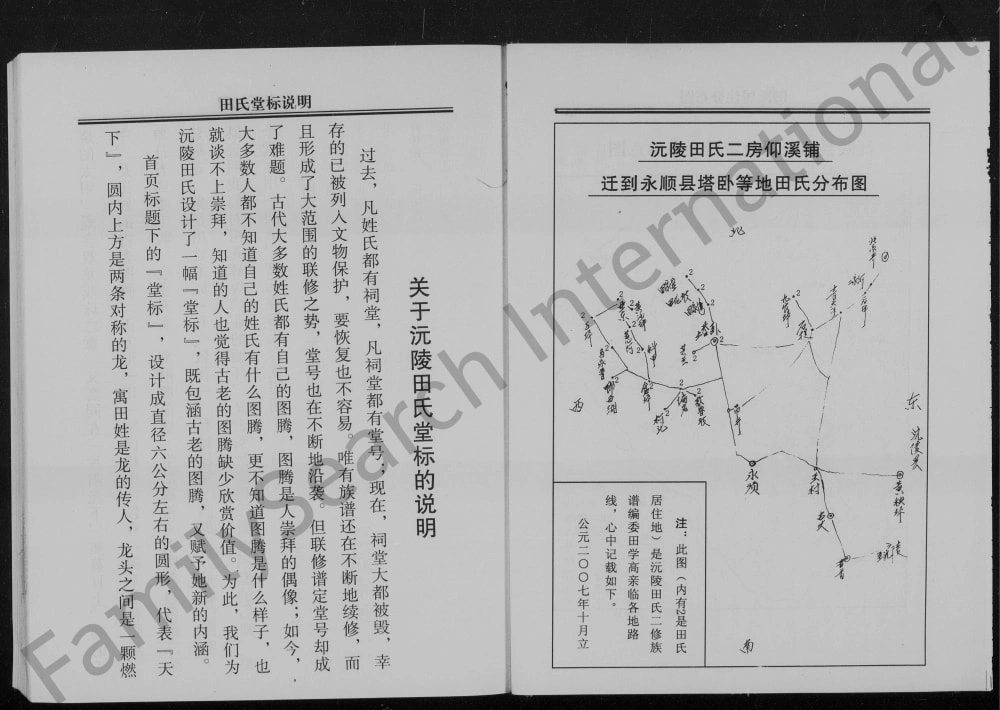 沅陵田氏二房仰溪铺
迁到永顺县塔卧等地田氏分布图
北
东
西
南
沅陵县
永顺
注：此图（内有2是田氏
居住地）是沅陵田氏二修族
谱编委田学高亲临各地路
线，心中记载如下。
公元二〇〇七年十月立
田氏堂标说明
关于沅陵田氏堂标的说明
过去，凡姓氏都有祠堂，凡祠堂都有堂号；现在，祠堂大都被毁，幸
存的已被列入文物保护，要恢复也不容易。唯有族谱还在不断地续修，而
且形成了大范围的联修之势，堂号也在不断地沿袭。但联修谱定堂号却成
了难题。古代大多数姓氏都有自己的图腾，图腾是人崇拜的偶像；如今，
大多数人都不知道自己的姓氏有什么图腾，更不知道图腾是什么样子，也
就谈不上崇拜，知道的人也觉得古老的图腾缺少欣赏价值。为此，我们为
沅陵田氏设计了一幅『堂标』，既包涵古老的图腾，又赋予她新的内涵。
首页标题下的『堂标』，设计成直径六公分左右的圆形，代表『天
下』，圆内上方是两条对称的龙，寓田姓是龙的传人，龙头之间是一颗燃
FamilySearch International